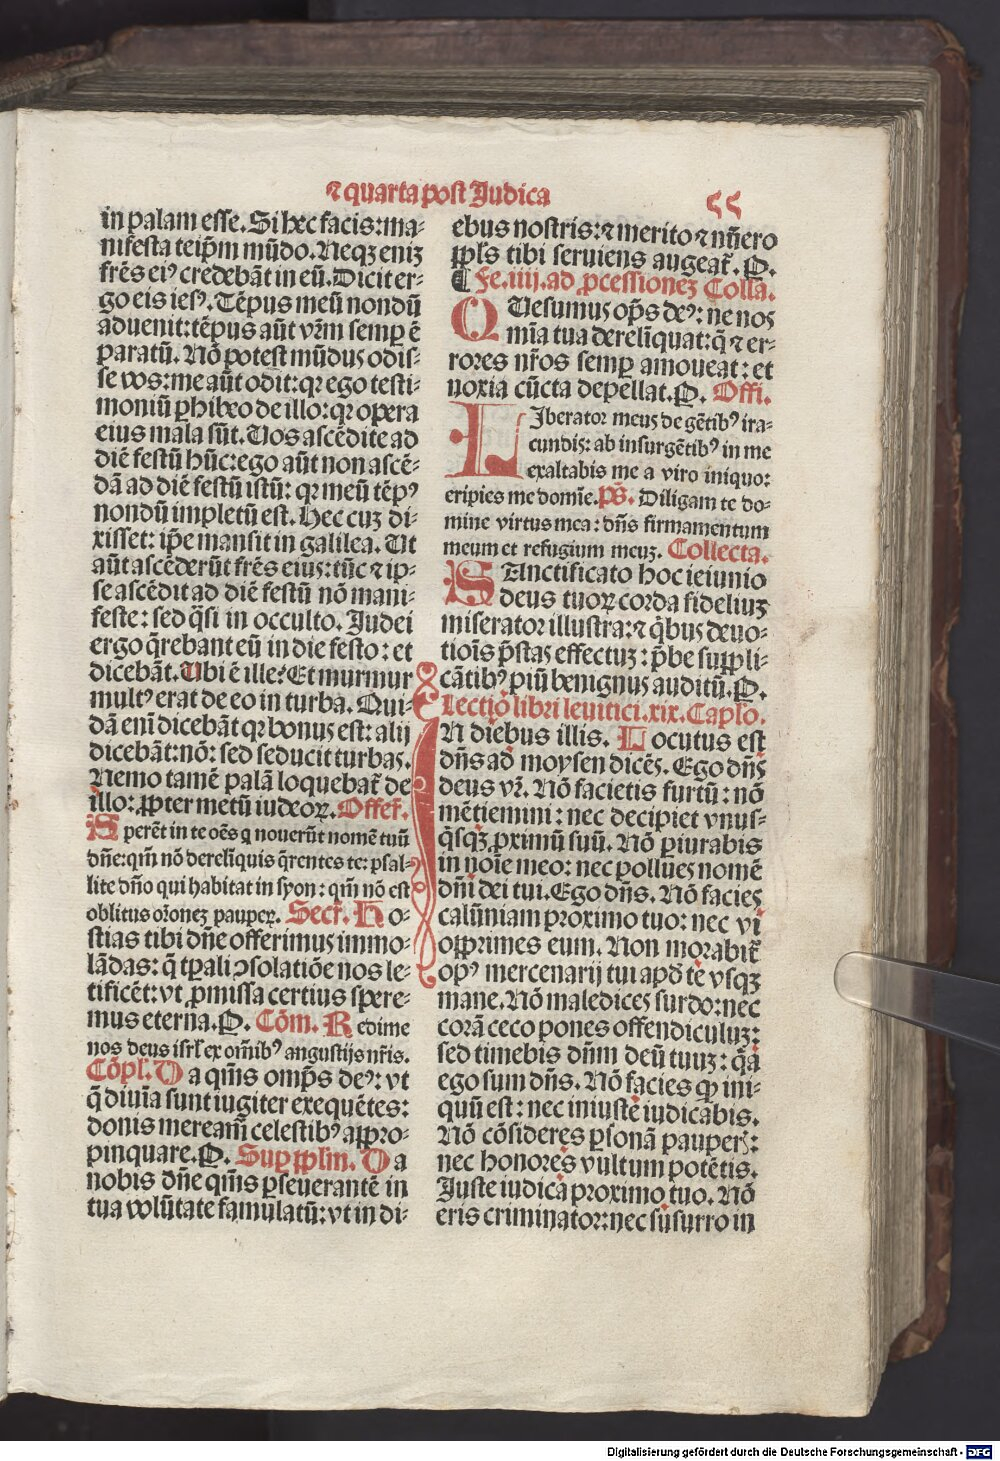 ⁊ quarta post Iudica ςς
in palam esse. Si hec facis: ma-
nifesta teip̄m mūdo. Neqꝫ eniꝫ
fr̄es eiꝰ credebāt in eū. Dicit er-
go eis iesꝰ. Tēpus meū nondū
aduenit: tēpus aūt vr̄m semꝑ ē
paratū. Nō potest mūdus odis-
se vos: me aūt odit: qꝛ ego testi-
moniū ꝑhibeo de illo: qꝛ opera
eius mala sūt. Uos ascēdite ad
diē festū hūc: ego aūt non ascē-
dā ad diē festū istū: qꝛ meū tēpꝰ
nondū impletū est. Hec cuꝫ di-
xisset: ip̄e mansit in galilea. Ut
aūt ascēderūt fr̄es eius: tūc ⁊ ip-
se ascēdit ad diē festū nō mani-
feste: sed q̄si in occulto. Iudei
ergo q̄rebant eū in die festo: et
dicebāt. Ubi ē ille? Et murmur
multꝰ erat de eo in turba. Qui-
dā eni̅ dicebāt qꝛ bonus est: alij
dicebāt: nō: sed seducit turbas.
Nemo tamē palā loquebat᷑ de
illo: ꝓpter metū iudeoꝝ. Offer̄.
Sperēt in te oēs q nouerūt nomē tuū
dn̄e: qm̄ nō derelīquis q̄rentes te: psal-
lite dn̄o qui habitat in syon: qm̄ nō est
oblitus or̄oneꝫ pauperꝝ. Secr̄. Ho-
stias tibi dn̄e offerimus immo-
lādas: q̄ tp̄ali ꝯsolatiōe nos le-
tificēt: vt ꝓmissa certius spere-
mus eterna. P. Cōm. Redime
nos deus isrl̄ ex om̄ibꝰ angustijs nr̄is.
Cōpl̄. Da qm̄s omp̄s deꝰ: vt
q̄ diuīa sunt iugiter exequētes:
donis meream̄ celestibꝰ appro-
pinquare. P. Suꝑ pp̄lm. Da
nobis dn̄e qm̄s ꝑseuerantē in
tua volūtate famulatū: vt in di-
ebus nostris: ⁊ merito ⁊ nūero
pp̄ls tibi seruiens augeat᷑. P.
¶ Fe. iiij. ad ꝓcessioneꝫ Colla.
QUesumus op̄s deꝰ: ne nos
mīa tua derelīquat: q̄ ⁊ er-
rores nr̄os semꝑ amoueat: et
noxia cūcta depellat. P. Offi.
LIberator meus de gētibꝰ ira-
cundis: ab insurgētibꝰ in me
exaltabis me a viro iniquo:
eripies me domīe. Ps̄. Diligam te do-
mine virtus mea: dn̄s firmamentum
meum et refugium meuꝫ. Collecta.
SAnctificato hoc ieiunio
deus tuoꝝ corda fideliuꝫ
miserator illustra: ⁊ q̄bus deuo-
tiōis p̄stas effectuꝫ: p̄be suppli-
cātibꝰ piū benignus auditū. P.
Lectiō libri leuitici. xix. Capl̄o.
IN diebus illis. Locutus est
dn̄s ad moysen dicēs. Ego dn̄s
deus vr̄. Nō facietis furtū: nō
mētiemini: nec decipiet vnus-
q̄sqꝫ ꝓximū suū. Nō ꝑiurabis
in noīe meo: nec pollues nomē
dn̄i dei tui. Ego dn̄s. Nō facies
calūniam proximo tuo: nec vi
opprimes eum. Non morabit᷑
opꝰ mercenarij tui apd̄ te vsqꝫ
mane. Nō maledices surdo: nec
corā ceco pones offendiculuꝫ:
sed timebis dn̄m deū tuuꝫ: q̄a
ego sum dn̄s. Nō facies qp̄ ini-
quū est: nec iniuste iudicabis.
Nō cōsideres ꝑsonā pauperis:
nec honores vultum potētis.
Iuste iudica proximo tuo. Nō
eris criminator: nec susurro in
Digitalisierung gefördert durch die Deutsche Forschungsgemeinschaft - DFG